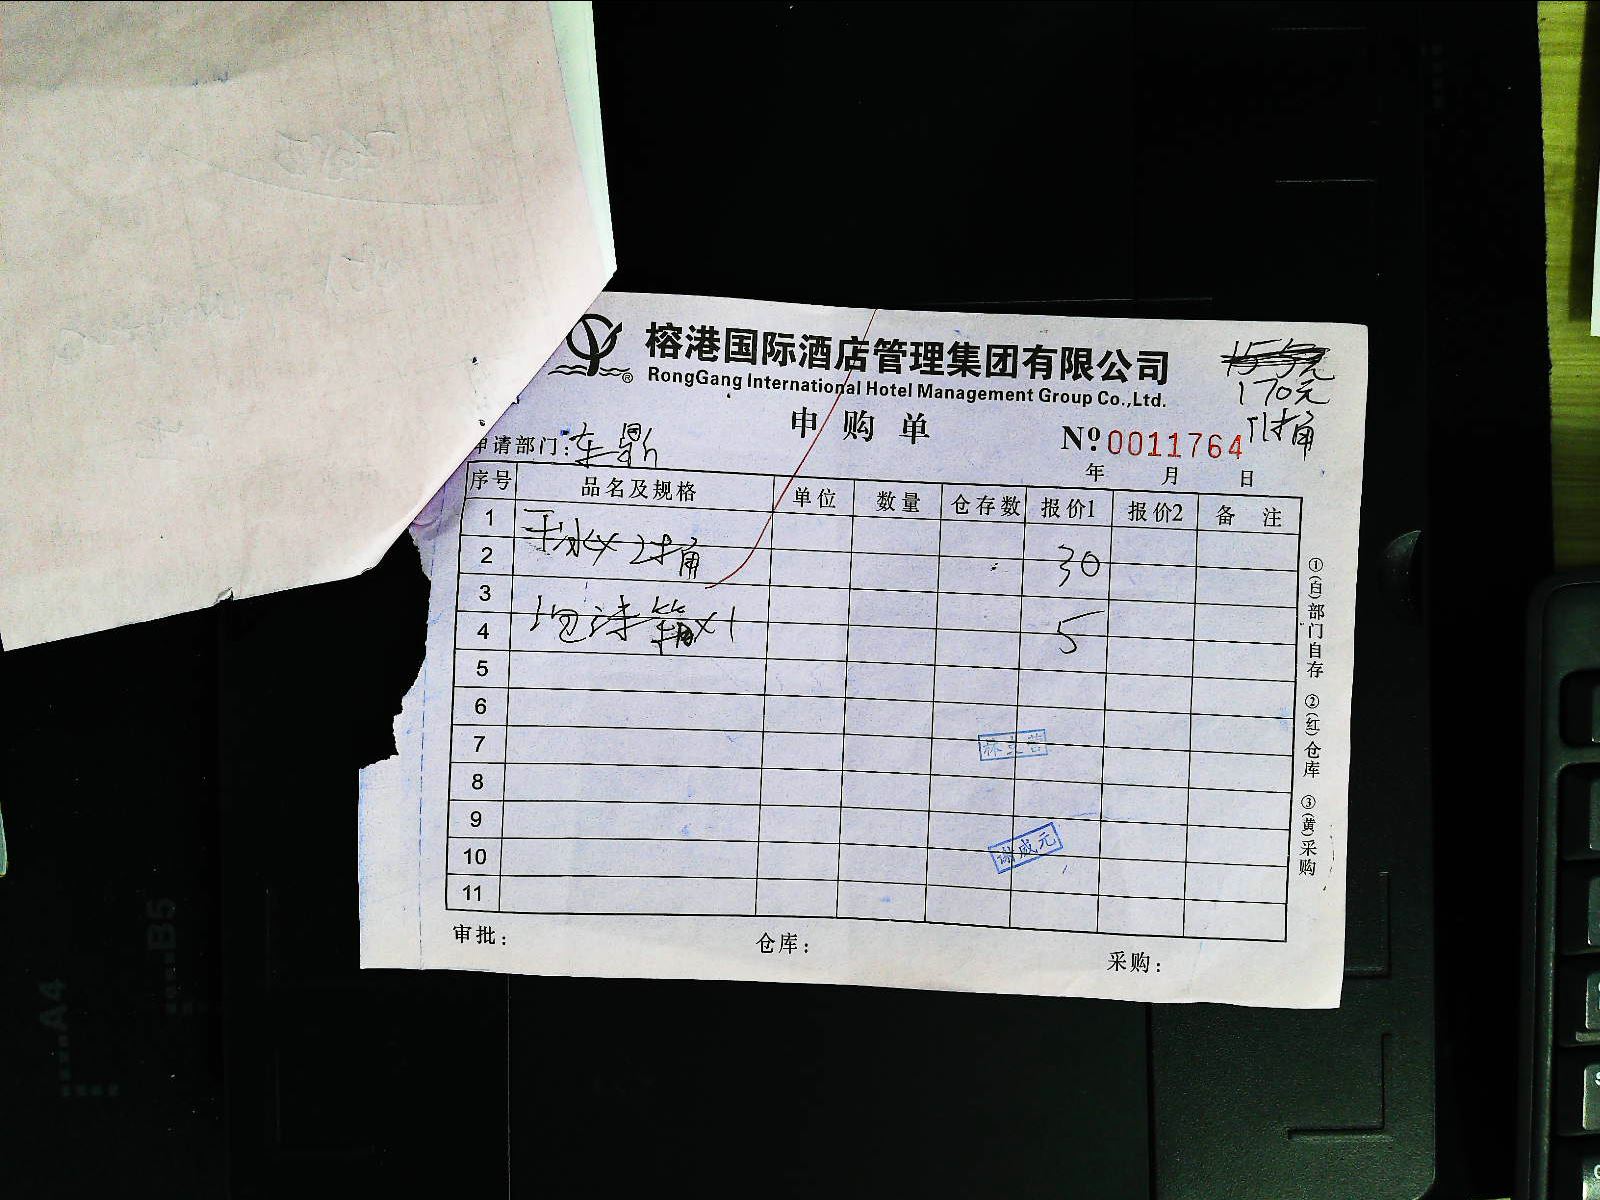 榕港国际酒店管理集团有限公司
RongGang International Hotel Management Group Co.,Ltd.
170元
申购单
№ 0011764
申请部门：
年 月 日
序号 品名及规格 单位 数量 仓存数 报价1 报价2 备 注
1 干冰×2桶 30
2
3
4 ×1 5
5
6
7
8
9
10 谢成元
11
审批： 仓库： 采购：
①(白)部门自存 ②(红)仓库 ③(黄)采购
A4
B5